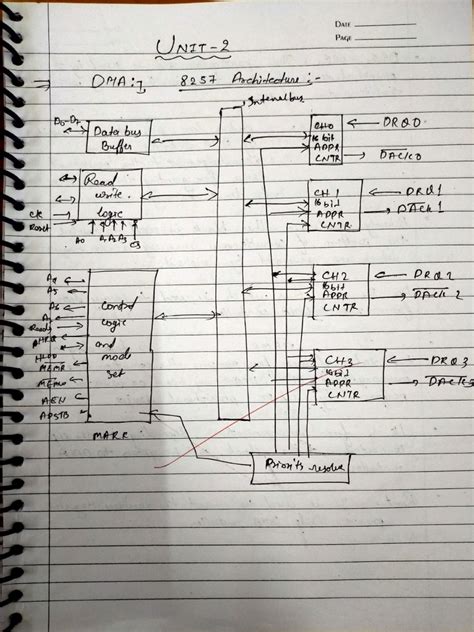 DATE
PAGE
UNIT-2
DMA:- 8257 Architecture:-
Internal bus
D0-D7
Data bus
Buffer
Read
write
logic
Clk
Reset
A0 A1 A2 A3
CS
A4
A5
A6
A7
Ready
HRQ
HLDA
MEMR
MEMW
AEN
ADSTB
Control
logic
and
mode
set
MARK
CH0
16 bit
ADDR
CNTR
DRQ0
DACK0
CH1
16 bit
ADDR
CNTR
DRQ1
DACK1
CH2
16 bit
ADDR
CNTR
DRQ2
DACK2
CH3
16 bit
ADDR
CNTR
DRQ3
DACK3
Priority resolve